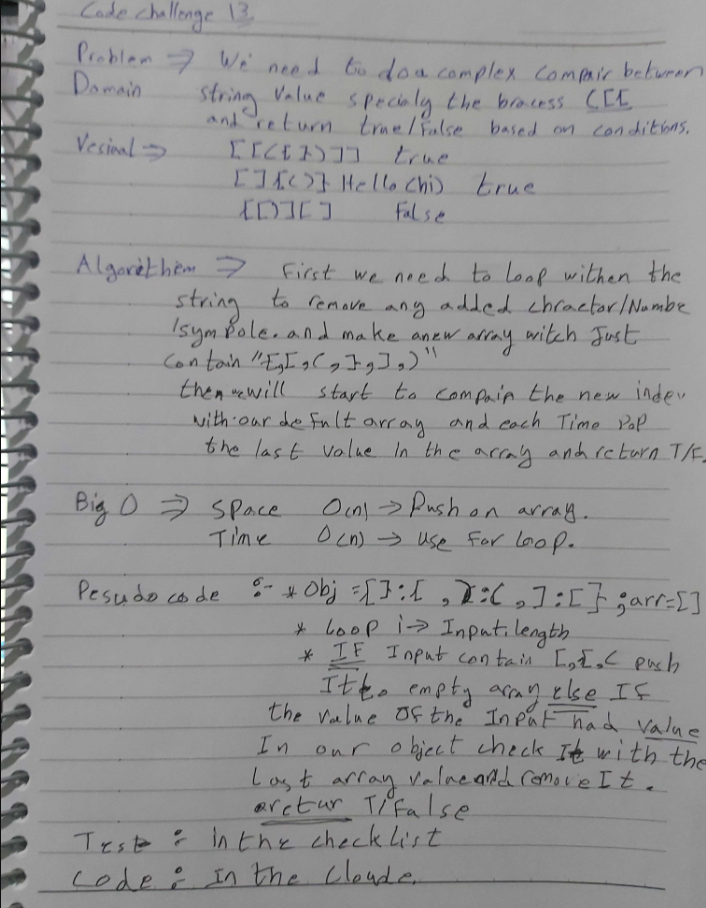 Code challenge 13.
Problem => We need to do a complex compair between
Domain string value specialy the bracess C[{
and return true/false based on conditions.
Vesiual => [[({})]] true
[]{()} Hello(hi) true
{[)][] false
Algorithem => First we need to loop withen the
string to remove any added chractor/Numbe
/sympole. and make anew array witch Just
contain "{,[,(,},],)"
then we will start to compair the new index
with our defult array and each Time pop
the last value in the array and return T/F.
Big O => Space O(n) -> Push on array.
Time O(n) -> use for loop.
Pesudocode :- * Obj ={}:{ ,):( ,]:[} ;arr=[]
* Loop i-> Input.length
* IF Input contain [,{,( push
It to empty array else IF
the value OF the Input had value
In our object check It with the
Last array value and remove It.
retur T/False
Test : in the checklist
code : In the Cloude.